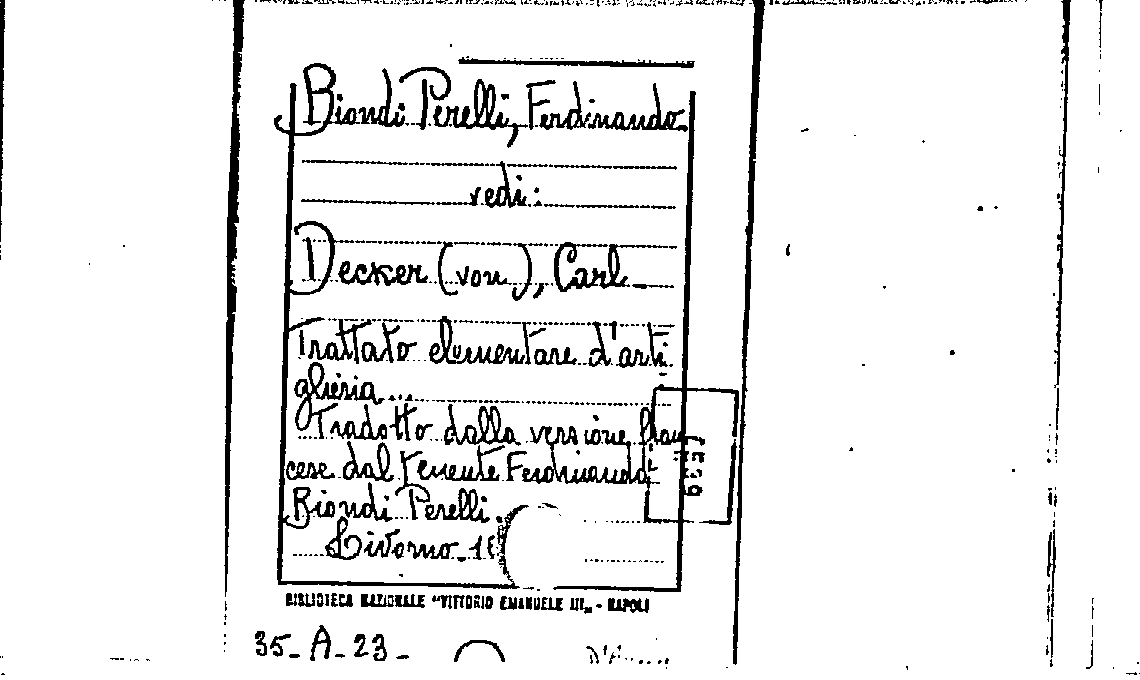 Biondi Perelli, Ferdinando.
vedi:
Decker (von), Carl.
Trattato elementare d'arti
glieria...
Tradotto dalla versione fran
cese dal tenente Ferdinando
Biondi Perelli.
Livorno. 18
BIBLIOTECA NAZIONALE "VITTORIO EMANUELE III„ - NAPOLI
35-A-23-